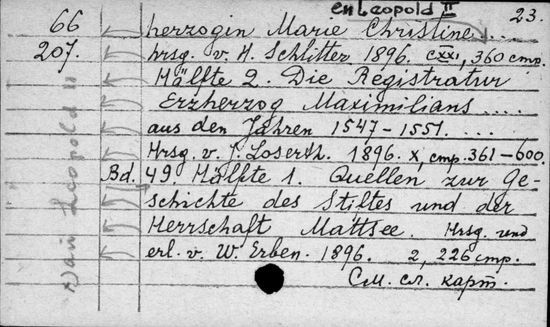 en Leopold II
23.
66 herzogin Marie Christine ....
207. hrsg. v. H. Schlitter 1896. CXXI, 360 стр.
Hälfte 2. Die Registratur
Erzherzog Maximilians ....
aus den Jahren 1547-1551. ....
Hrsg. v. J. Loserth. 1896. X, стр. 361-600.
Bd. 49. Hälfte 1. Quellen zur Ge-
schichte des Stiftes und der
Herrschaft Mattsee. Hrsg. und
erl. v. W. Erben. 1896. 2, 226 стр.
См. сл. карт.
Leopold II